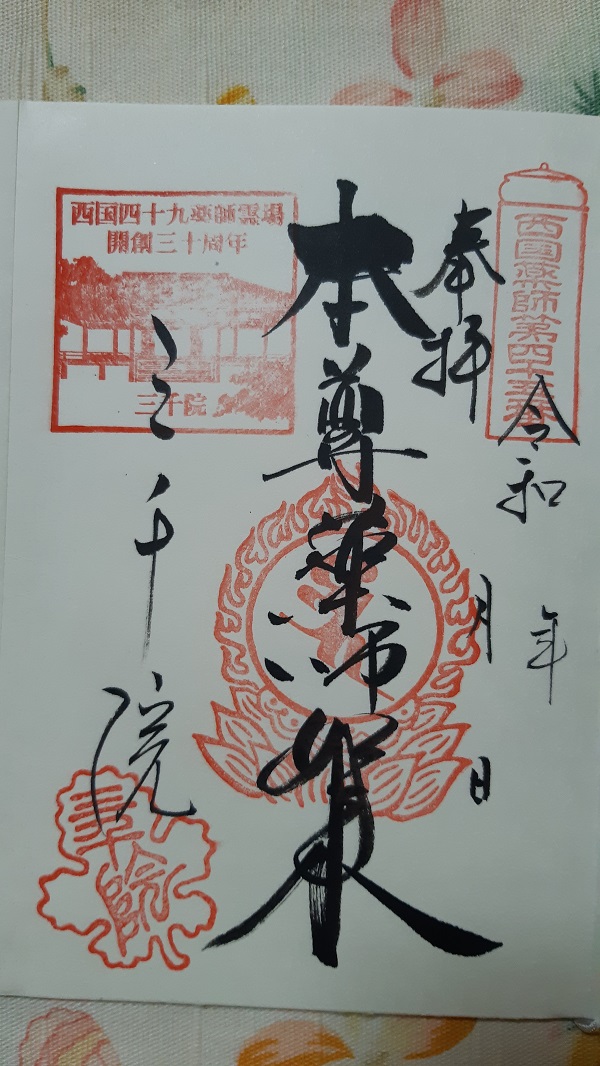 西国薬師第四十五番
奉拝
令和 年
月 日
本尊薬師如来
西国四十九薬師霊場
開創三十周年
三千院
三千院